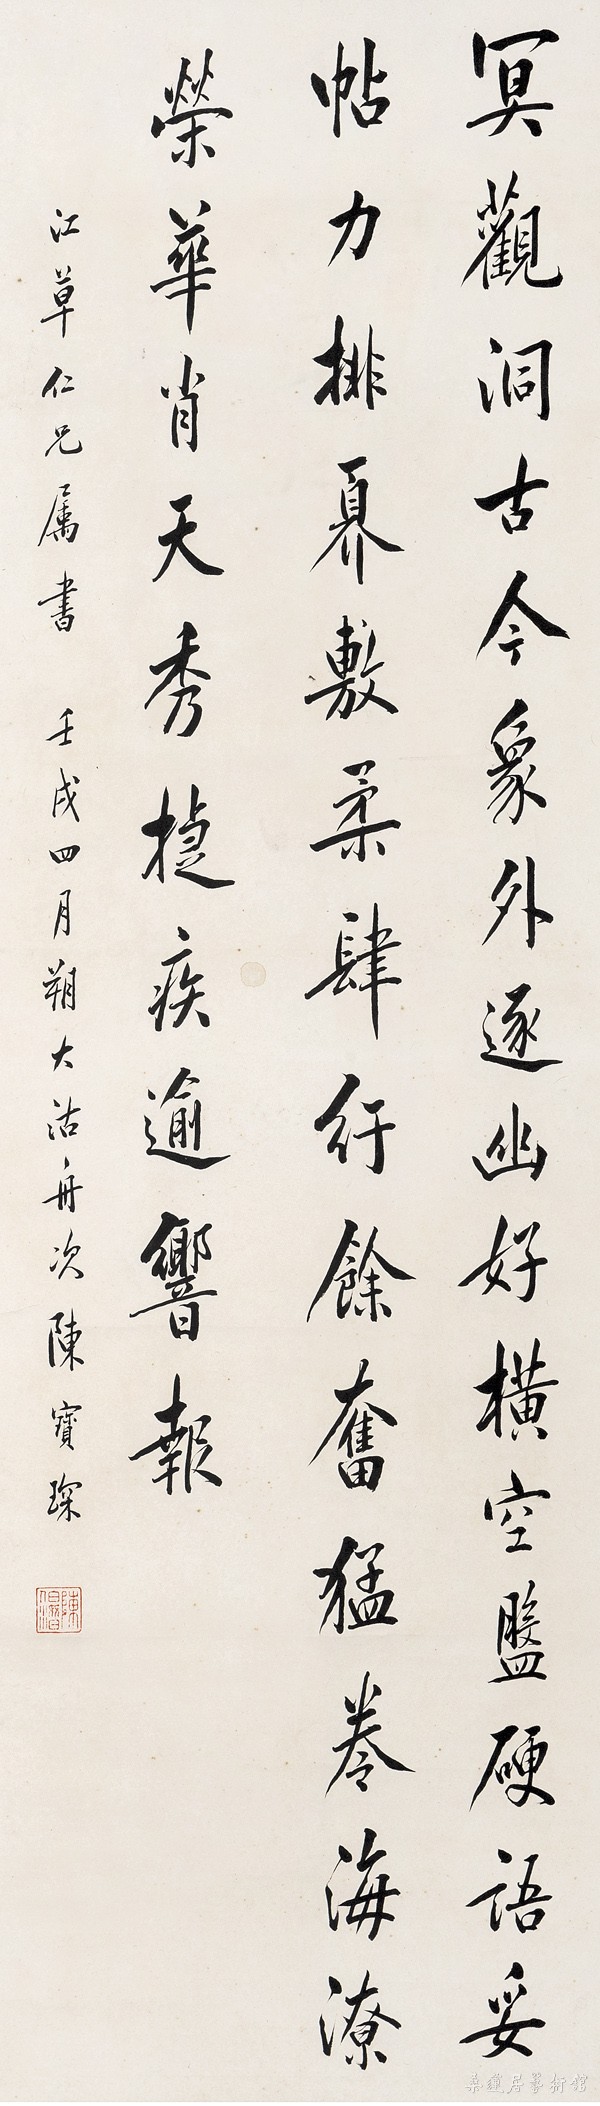 冥觀洞古今象外逐幽好橫空盤硬語妥
帖力排奡敷柔肆紆餘奮猛卷海潦
榮華肖天秀捷疾逾響報
江草仁兄属書 壬戌四月朔大沽舟次陳寶琛
居藝術館